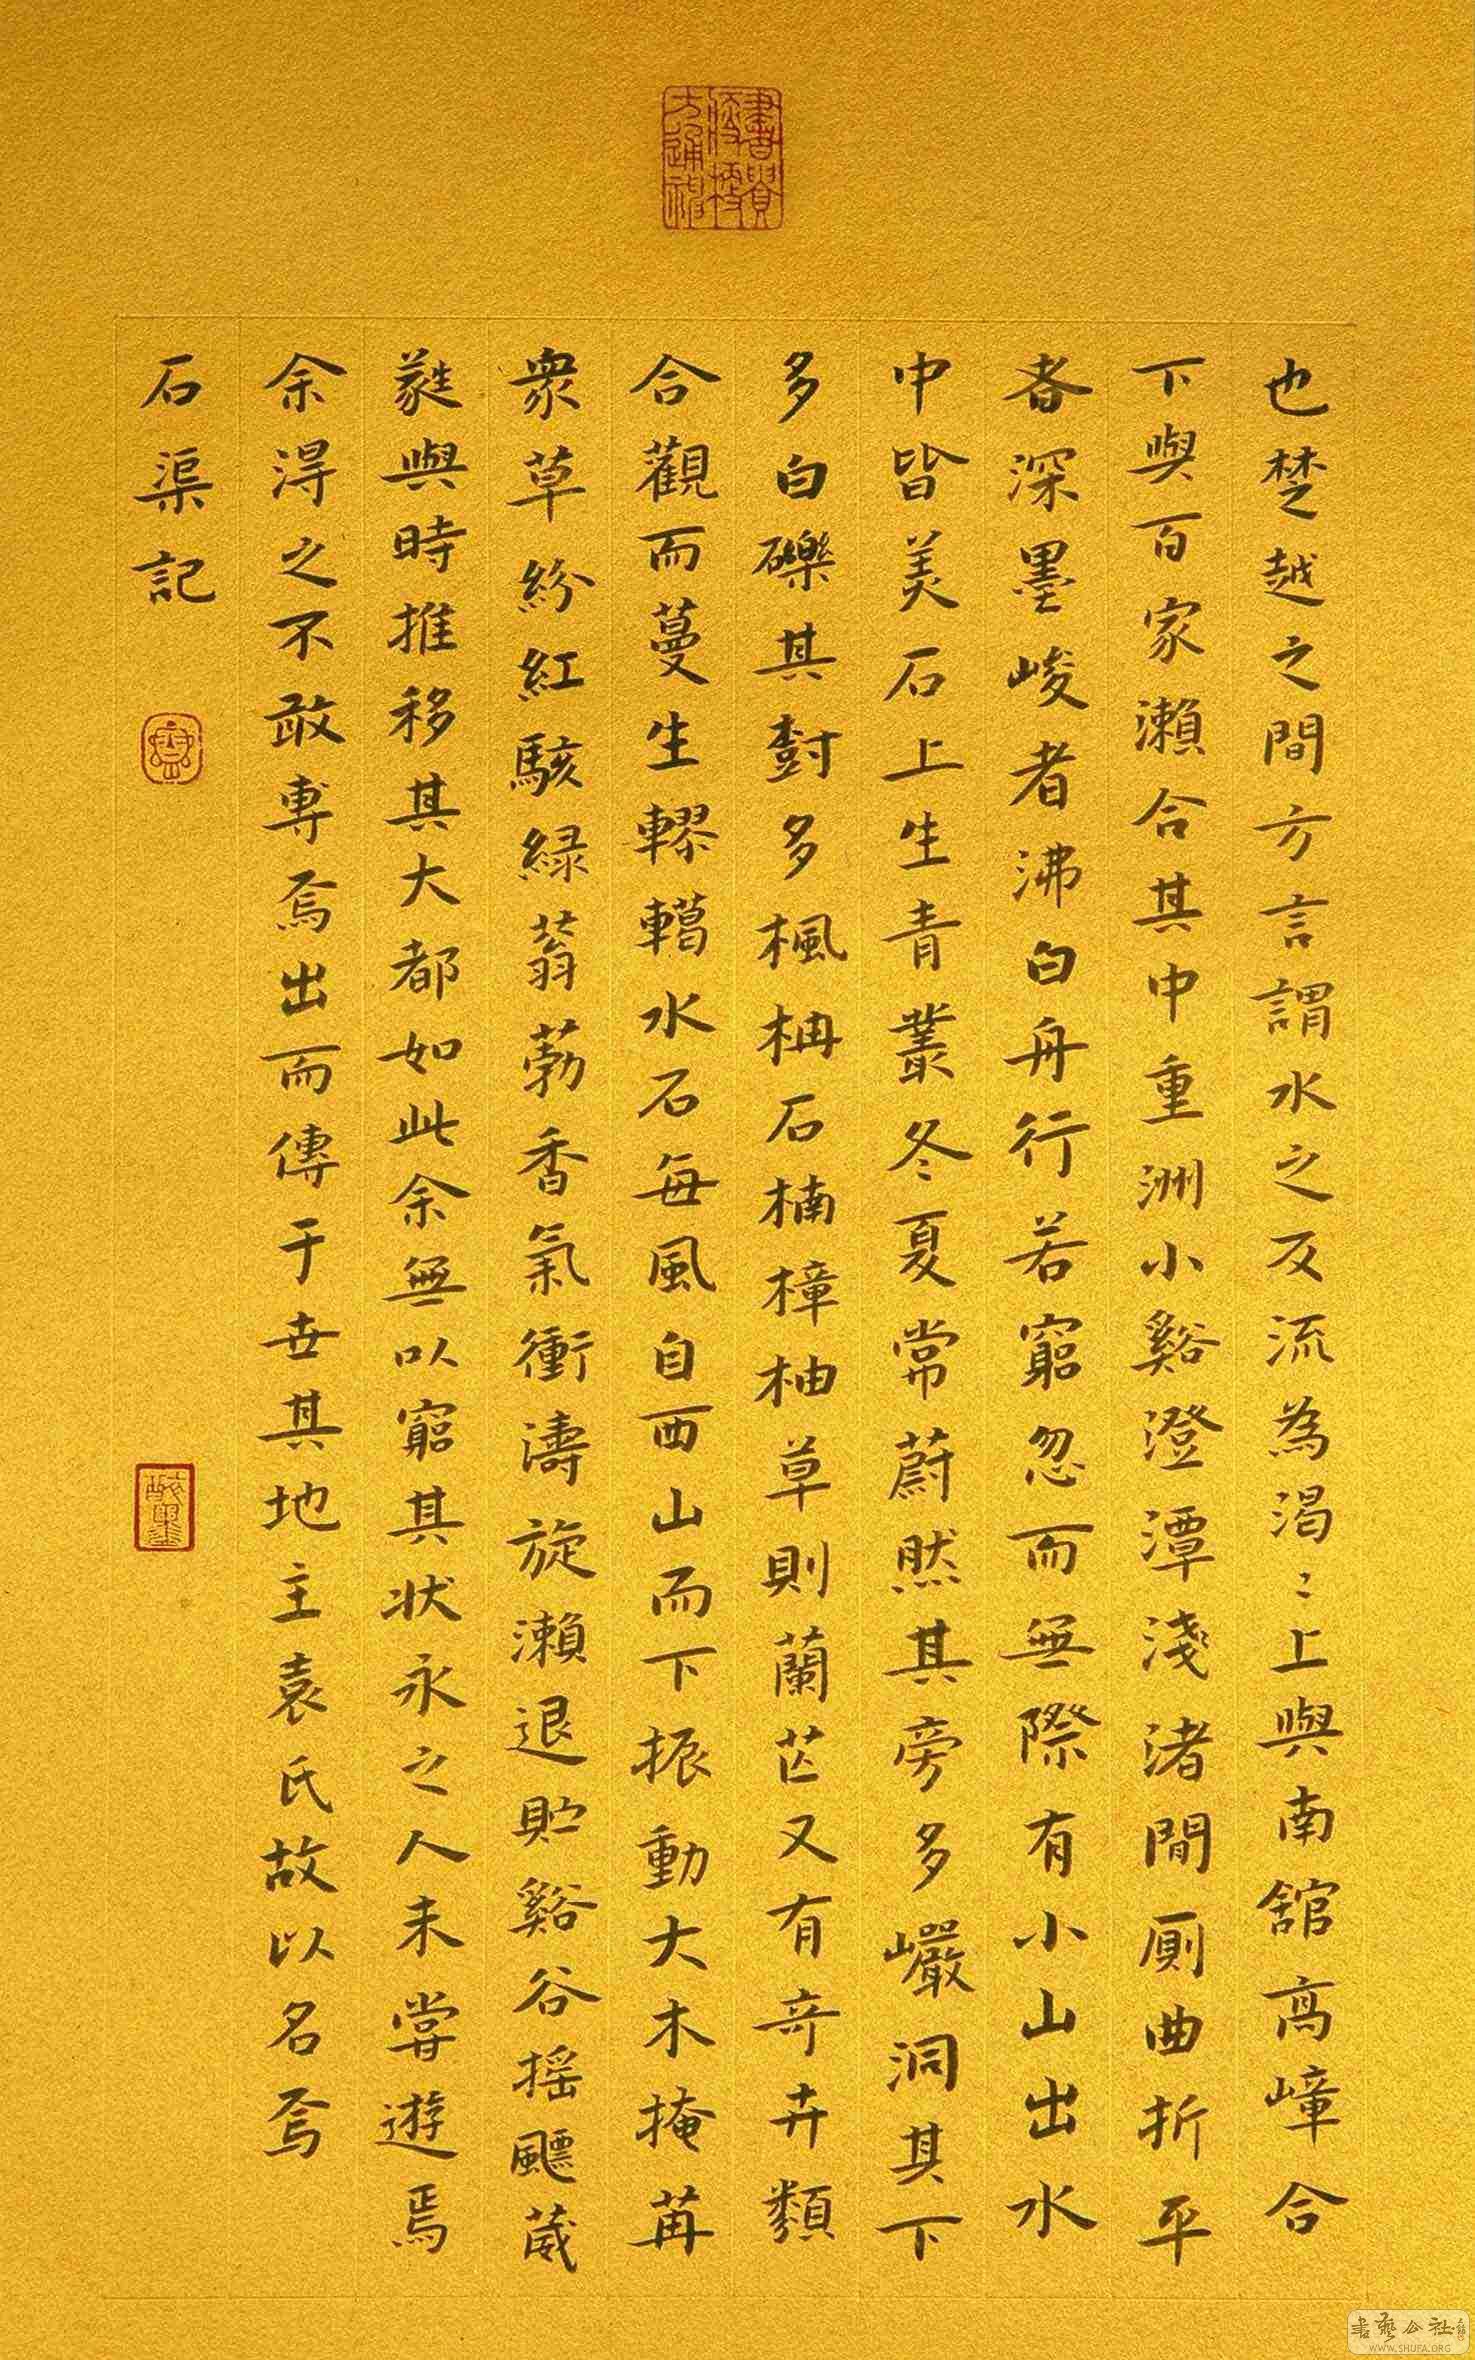 書貴瘦硬方通神
也楚越之間方言謂水之反流為渴〻上與南舘高嶂合
下與百家瀨合其中重洲小谿澄潭淺渚間廁曲折平
者深墨峻者沸白舟行若窮忽而無際有小山出水
中皆美石上生青叢冬夏常蔚然其旁多巖洞其下
多白礫其樹多楓柟石楠樟柚草則蘭芷又有奇卉類
合觀而蔓生轇轕水石每風自西山而下振動大木掩苒
衆草紛紅駭綠蓊葧香氣衝濤旋瀨退貯谿谷搖飃葳
蕤與時推移其大都如此余無以窮其状永之人未嘗遊焉
余得之不敢專焉出而傳于世其地主袁氏故以名焉
石渠記
醉墨
書藝公社
WWW.SHUFA.ORG